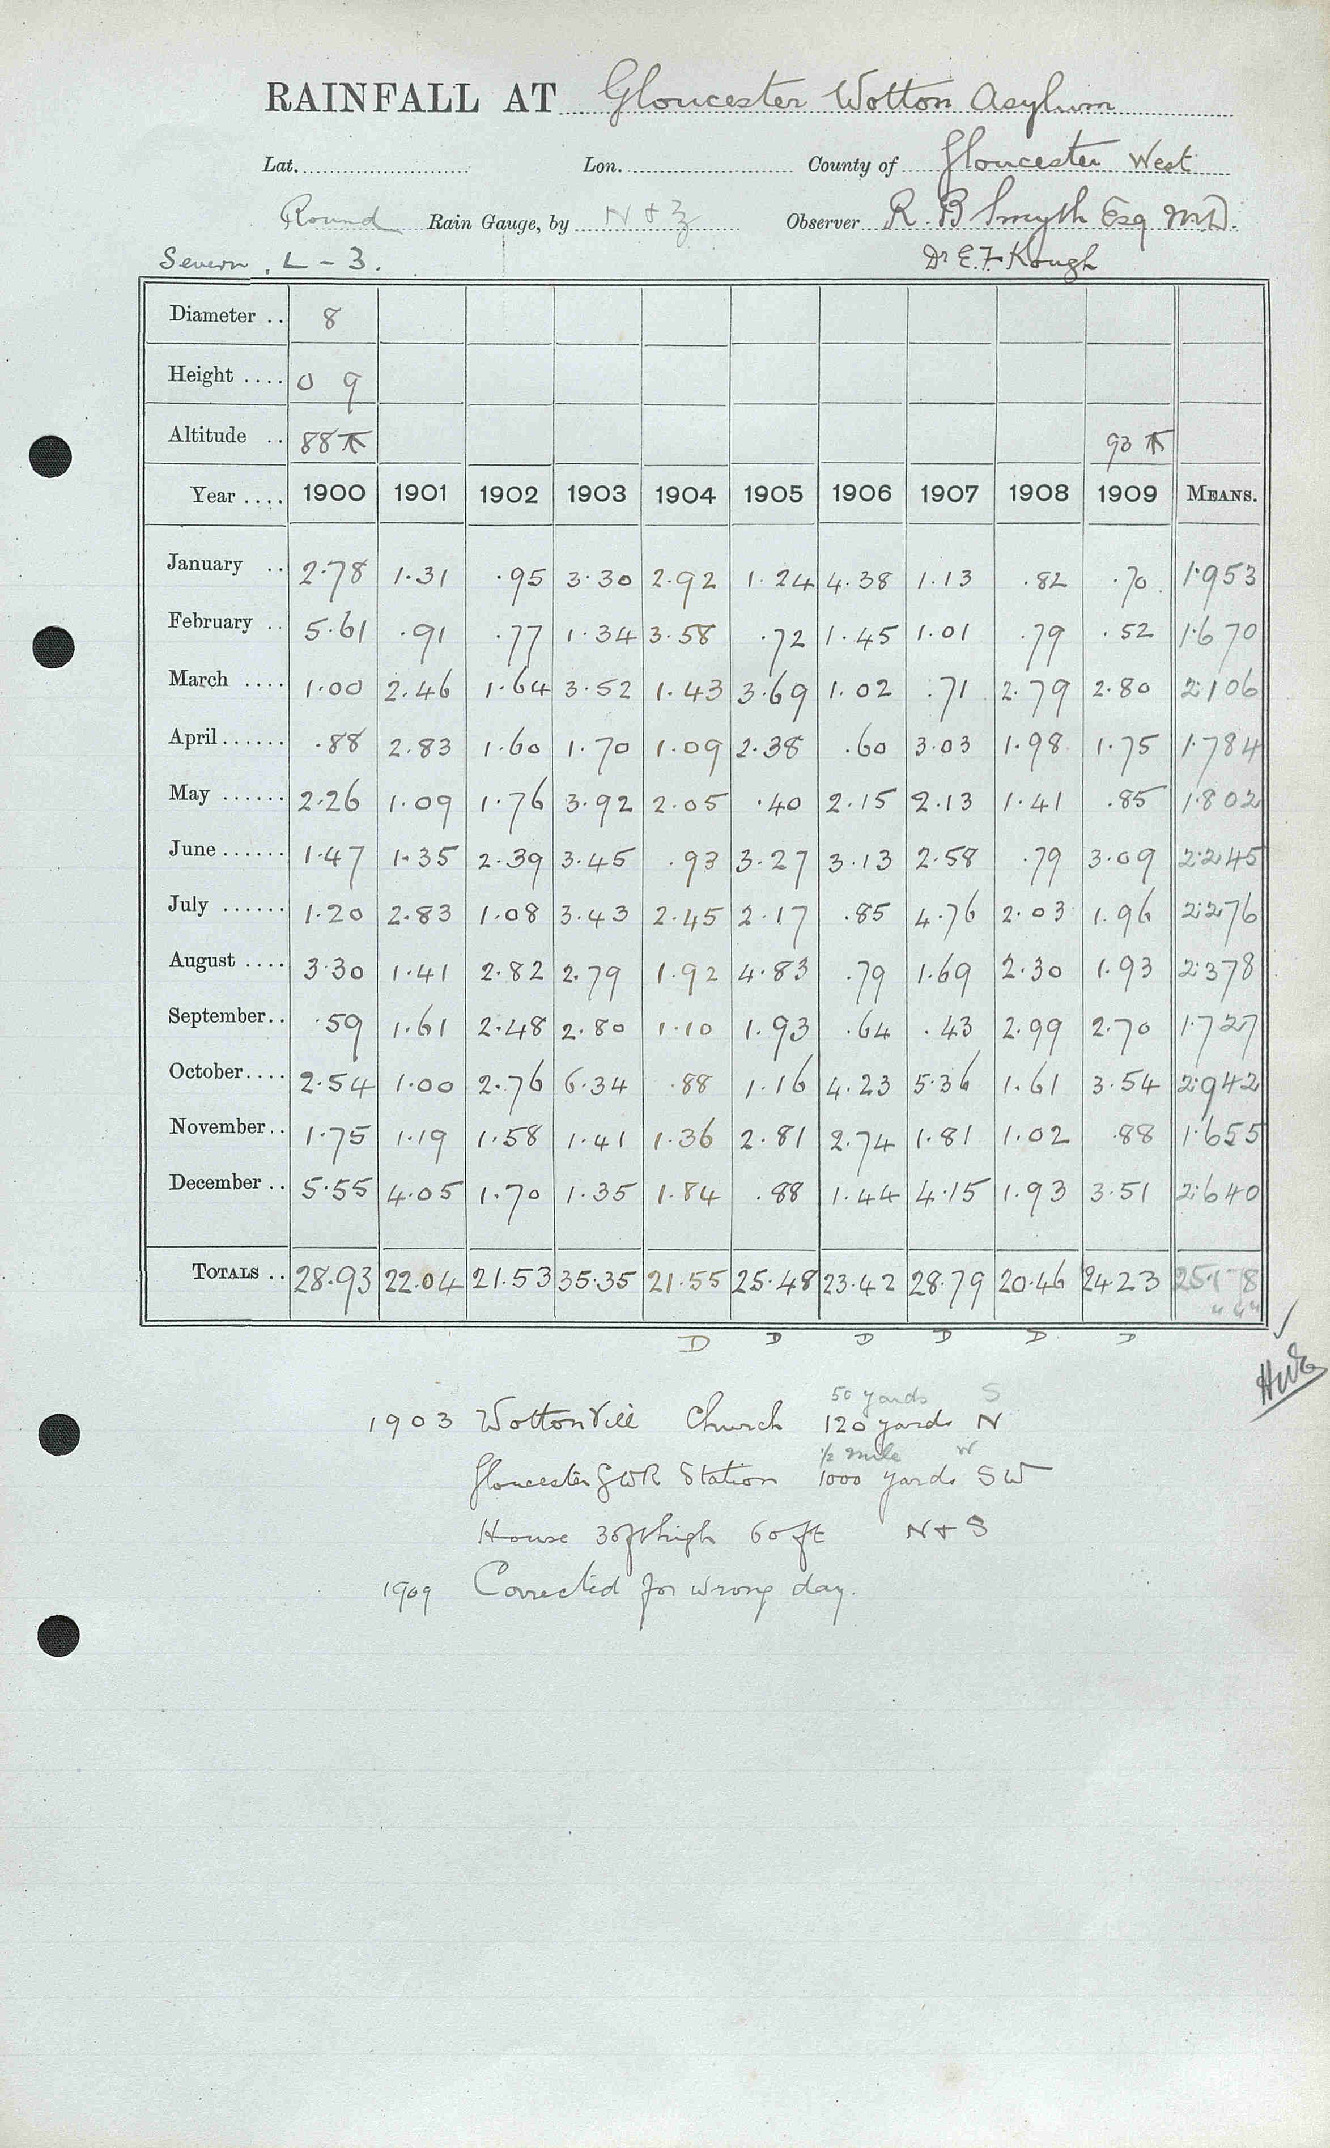 RAINFALL AT Gloucester Wotton Asylum
Lat. Lon. County of Gloucester West
Round Rain Gauge, by N & Z Observer R. B Smyth Esq M.D.
Severn. L-3. Dr E. F. Kough
Diameter .. 8
Height .... 0 9
Altitude .. 88 93
Year .... 1900 1901 1902 1903 1904 1905 1906 1907 1908 1909 MEANS.
January .. 2.78 1.31 .95 3.30 2.92 1.24 4.38 1.13 .82 .70 1.953
February .. 5.61 .91 .77 1.34 3.58 .72 1.45 1.01 .79 .52 1.670
March .... 1.00 2.46 1.64 3.52 1.43 3.69 1.02 .71 2.79 2.80 2.106
April ...... .88 2.83 1.60 1.70 1.09 2.38 .60 3.03 1.98 1.75 1.784
May ...... 2.26 1.09 1.76 3.92 2.05 .40 2.15 2.13 1.41 .85 1.802
June ...... 1.47 1.35 2.39 3.45 .93 3.27 3.13 2.58 .79 3.09 2.245
July ...... 1.20 2.83 1.08 3.43 2.45 2.17 .85 4.76 2.03 1.96 2.276
August .... 3.30 1.41 2.82 2.79 1.92 4.83 .79 1.69 2.30 1.93 2.378
September.. .59 1.61 2.48 2.80 1.10 1.93 .64 .43 2.99 2.70 1.727
October.... 2.54 1.00 2.76 6.34 .88 1.16 4.23 5.36 1.61 3.54 2.942
November.. 1.75 1.19 1.58 1.41 1.36 2.81 2.74 1.81 1.02 .88 1.655
December .. 5.55 4.05 1.70 1.35 1.84 .88 1.44 4.15 1.93 3.51 2.640
TOTALS .. 28.93 22.04 21.53 35.35 21.55 25.48 23.42 28.79 20.46 24.23
D D D D D D
50 yards S
1903 Wotton Vill Church 120 yards N
1/2 mile W
Gloucester GWR Station 1000 yards SW
House 30ft high 60 ft N + S
1909 Corrected for wrong day.